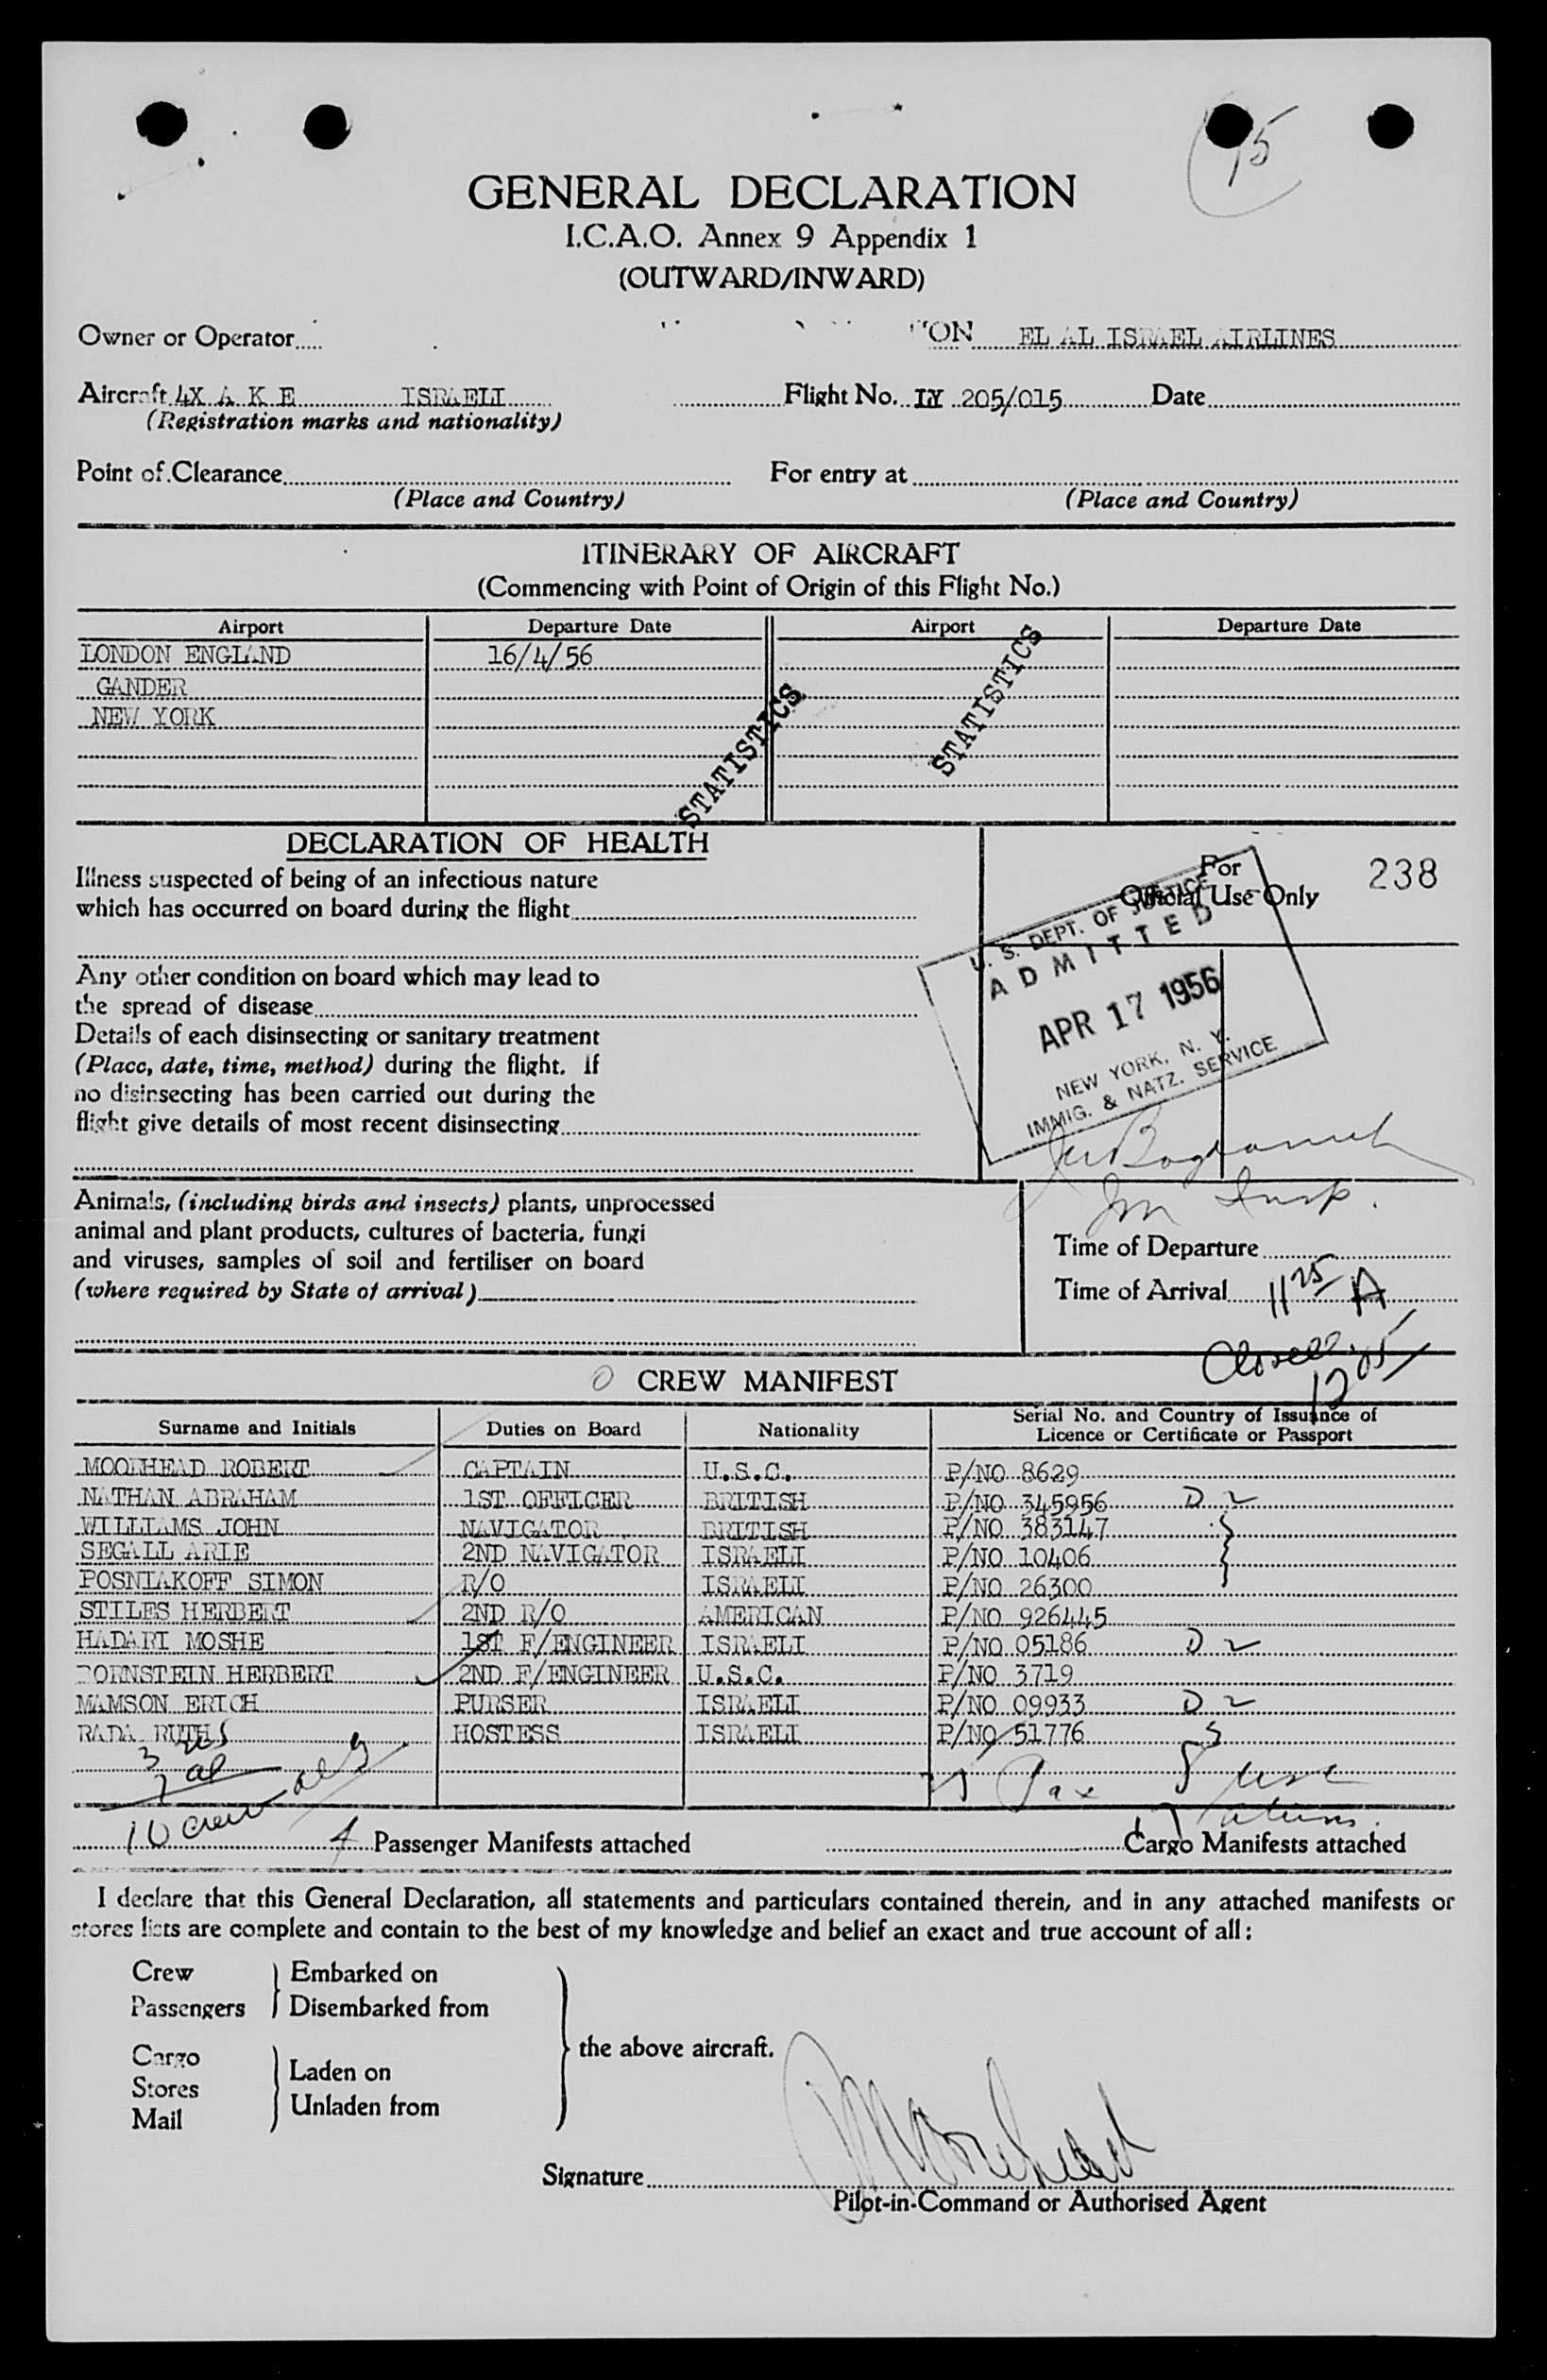 15
GENERAL DECLARATION
I.C.A.O. Annex 9 Appendix 1
(OUTWARD/INWARD)
Owner or Operator EL AL ISRAEL AIRLINES
Aircraft 4X A K E ISRAELI Flight No. LY 205/015 Date
(Registration marks and nationality)
Point of Clearance For entry at
(Place and Country) (Place and Country)
ITINERARY OF AIRCRAFT
(Commencing with Point of Origin of this Flight No.)
Airport Departure Date Airport Departure Date
LONDON ENGLAND 16/4/56
GANDER
NEW YORK
STATISTICS STATISTICS
DECLARATION OF HEALTH
Illness suspected of being of an infectious nature
which has occurred on board during the flight
For
Official Use Only
238
Any other condition on board which may lead to
the spread of disease
Details of each disinsecting or sanitary treatment
(Place, date, time, method) during the flight. If
no disinsecting has been carried out during the
flight give details of most recent disinsecting
U. S. DEPT. OF JUSTICE
ADMITTED
APR 17 1956
NEW YORK, N. Y.
IMMIG. & NATZ. SERVICE
Im Insp.
Animals, (including birds and insects) plants, unprocessed
animal and plant products, cultures of bacteria, fungi
and viruses, samples of soil and fertiliser on board
(where required by State of arrival)
Time of Departure
Time of Arrival 11 25 A
Closed 12 05
CREW MANIFEST
Surname and Initials Duties on Board Nationality Serial No. and Country of Issuance of
Licence or Certificate or Passport
MOORHEAD ROBERT CAPTAIN U.S.C. P/NO 8629
NATHAN ABRAHAM 1ST OFFICER BRITISH P/NO 345956 D 2
WILLIAMS JOHN NAVIGATOR BRITISH P/NO 383147
SEGALL ARIE 2ND NAVIGATOR ISRAELI P/NO 10406
POSNIAKOFF SIMON R/O ISRAELI P/NO 26300
STILES HERBERT 2ND R/O AMERICAN P/NO 926445
HADARI MOSHE 1ST F/ENGINEER ISRAELI P/NO 05186 D 2
BORNSTEIN HERBERT 2ND F/ENGINEER U.S.C. P/NO 3719
MAMSON ERICH PURSER ISRAELI P/NO 09933 D 2
RADA RUTH HOSTESS ISRAELI P/NO 51776
3 USC
7 al
10 crew
Pax
8 USC
17 aliens
4 Passenger Manifests attached Cargo Manifests attached
I declare that this General Declaration, all statements and particulars contained therein, and in any attached manifests or
stores lists are complete and contain to the best of my knowledge and belief an exact and true account of all:
Crew Embarked on
Passengers Disembarked from
the above aircraft.
Cargo
Stores Laden on
Mail Unladen from
Signature RMoorhead
Pilot-in-Command or Authorised Agent